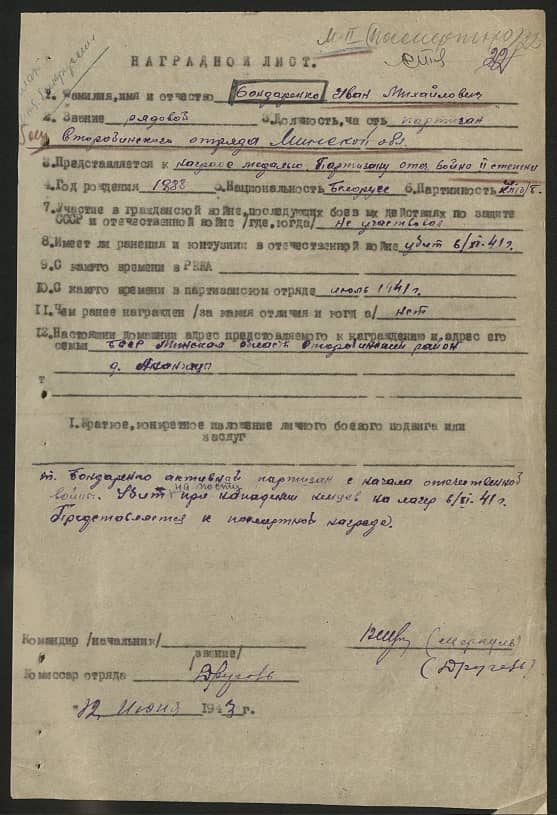 М-П (Посмертно)
НАГРАДНОЙ ЛИСТ.
1. Фамилия, имя и отчество Бондаренко Иван Михайлович
2. Звание рядовой 3. Должность, часть партизан
Старобинского отряда Минской обл.
3. Представляется к награде медалью Партизану отеч. войны II степени
4. Год рождения 1888 5. Национальность Белорусс 6. Партийность
7. Участие в гражданской войне, последующих боевых действиях по защите
СССР и отечественной войне /где, когда/ Не участвовал
8. Имеет ли ранения и контузии в отечественной войне убит 6/XI-41г.
9. С какого времени в РККА
10. С какого времени в партизанском отряде июль 1941г.
11. Чем ранее награжден /за какия отличия и когда/ нет
12. Настоящий домашний адрес предстовляемого к награждению и, адрес его
семьи БССР Минская область Старобинский район
д.
т
I. Краткое, конкретное изложение личного боевого подвига или
заслуг
т. Бондаренко активной партизан с начала отечественной
войны. Убит на посту при нападении немцев на лагер 6/XI-41г.
Представляется к посмертной награде.
Командир /начальник/
/звание/
Комиссар отряда
"12 Июня 1943 г.